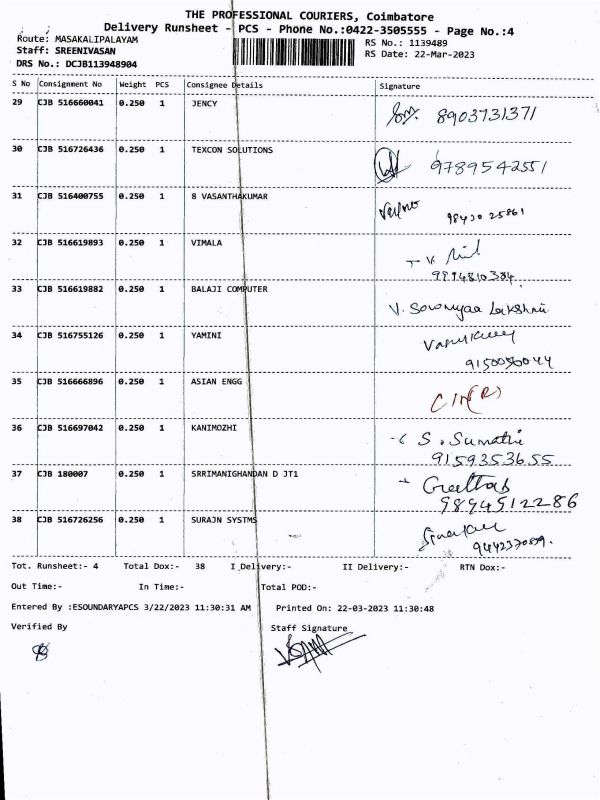 THE PROFESSIONAL COURIERS, Coimbatore
Delivery Runsheet - PCS - Phone No.:0422-3505555 - Page No.:4
Route: MASAKALIPALAYAM
RS No.: 1139489
Staff: SREENIVASAN
RS Date: 22-Mar-2023
DRS No.: DCJB113948904
S No Consignment No Weight PCS Consignee Details Signature
29 CJB 516660041 0.250 1 JENCY 8903731371
30 CJB 516726436 0.250 1 TEXCON SOLUTIONS 9789542551
31 CJB 516400755 0.250 1 8 VASANTHAKUMAR 98430 25861
32 CJB 516619893 0.250 1 VIMALA
9994810384
33 CJB 516619882 0.250 1 BALAJI COMPUTER V. Sowmyaa Lakshmi
34 CJB 516755126 0.250 1 YAMINI
9150050044
35 CJB 516666896 0.250 1 ASIAN ENGG
36 CJB 516697042 0.250 1 KANIMOZHI S. Sumathi
9159353655
37 CJB 180007 0.250 1 SRRIMANIGHANDAN D JT1
9894512286
38 CJB 516726256 0.250 1 SURAJN SYSTMS
Tot. Runsheet:- 4 Total Dox:- 38 I Delivery:- II Delivery:- RTN Dox:-
Out Time:- In Time:- Total POD:-
Entered By :ESOUNDARYAPCS 3/22/2023 11:30:31 AM Printed On: 22-03-2023 11:30:48
Verified By Staff Signature